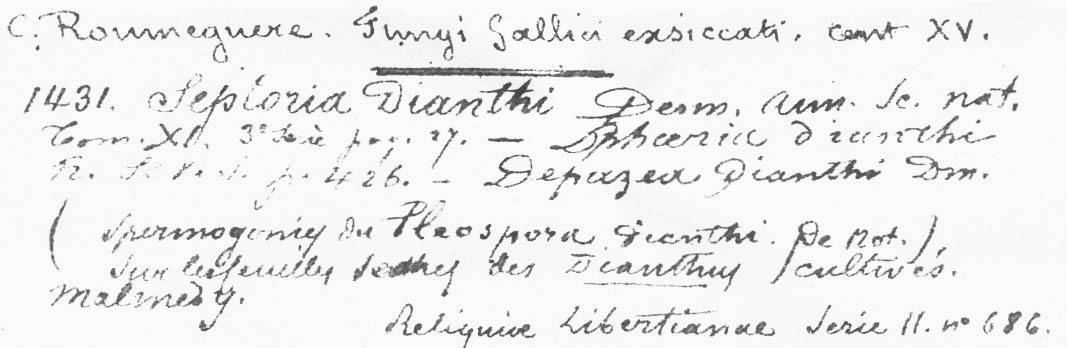 C. Roumeguere. Fungi Gallici exsiccati. cent XV.
1431. Septoria Dianthi Desm. Ann. Sc. nat.
Tom. XI. 3e Serie pag. 17. — Sphæria dianthi
p. 426. — Depazea Dianthi Dm.
(Spermogonies du Pleospora Dianthi. De Not.),
Sur les feuilles seches des Dianthus cultivés.
Malmedy.
Reliquiæ Libertianae Serie II. no 686.